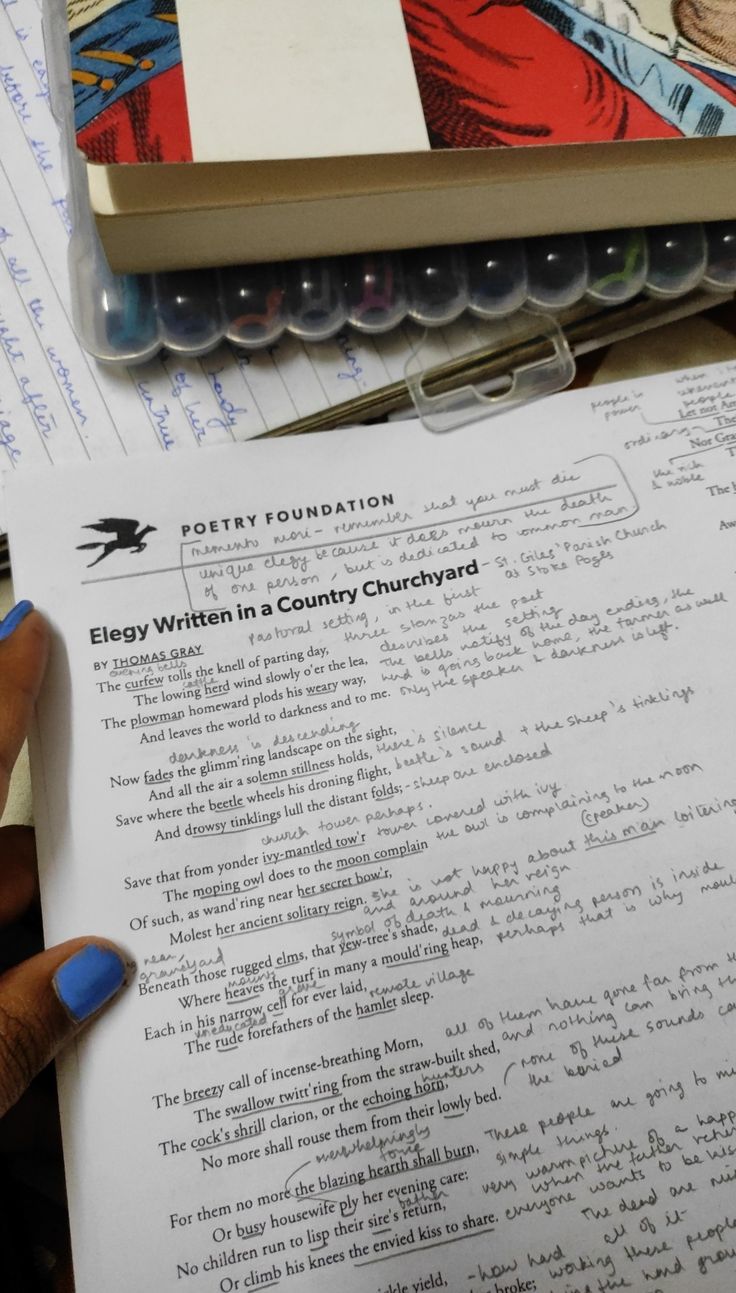 of all the women.
people in
power
Let not Am
ordinary
The
Nor Gra
the rich
& noble
POETRY FOUNDATION
memento mori - remember that you must die
unique elegy because it does mourn the death
of one person, but is dedicated to common man
Elegy Written in a Country Churchyard - St. Giles' Parish Church
at Stoke Poges
pastoral setting, in the first
three stanzas the poet
describes the setting
BY THOMAS GRAY
evening bells
The curfew tolls the knell of parting day, The bells notify of the day ending, the
cattle
The lowing herd wind slowly o'er the lea, herd is going back home, the farmer as well
The plowman homeward plods his weary way, only the speaker & darkness is left.
And leaves the world to darkness and to me.
darkness is descending
Now fades the glimm'ring landscape on the sight,
And all the air a solemn stillness holds, there's silence
Save where the beetle wheels his droning flight, beetle's sound + the sheep's tinklings
And drowsy tinklings lull the distant folds; - sheep are enclosed
church tower perhaps.
Save that from yonder ivy-mantled tow'r tower covered with ivy
The moping owl does to the moon complain the owl is complaining to the moon
Of such, as wand'ring near her secret bow'r, (speaker)
Molest her ancient solitary reign. she is not happy about this man loitering
and around her reign
near
graveyard
symbol of death & mourning
Beneath those rugged elms, that yew-tree's shade, dead & decaying person is inside
Where heaves the turf in many a mould'ring heap, perhaps that is why
grave
Each in his narrow cell for ever laid,
uneducated
remote village
The rude forefathers of the hamlet sleep.
The breezy call of incense-breathing Morn, all of them have gone far from
The swallow twitt'ring from the straw-built shed, and nothing can bring
hunters
The cock's shrill clarion, or the echoing horn, none of these sounds
No more shall rouse them from their lowly bed. the buried
overwhelmingly
For them no more the blazing hearth shall burn, These people are going to
Or busy housewife ply her evening care: simple things.
father
No children run to lisp their sire's return, very warm picture of a
when the father
Or climb his knees the envied kiss to share. everyone wants to be
The dead are
all of it
yield, - how hard
broke; working these people
the hard